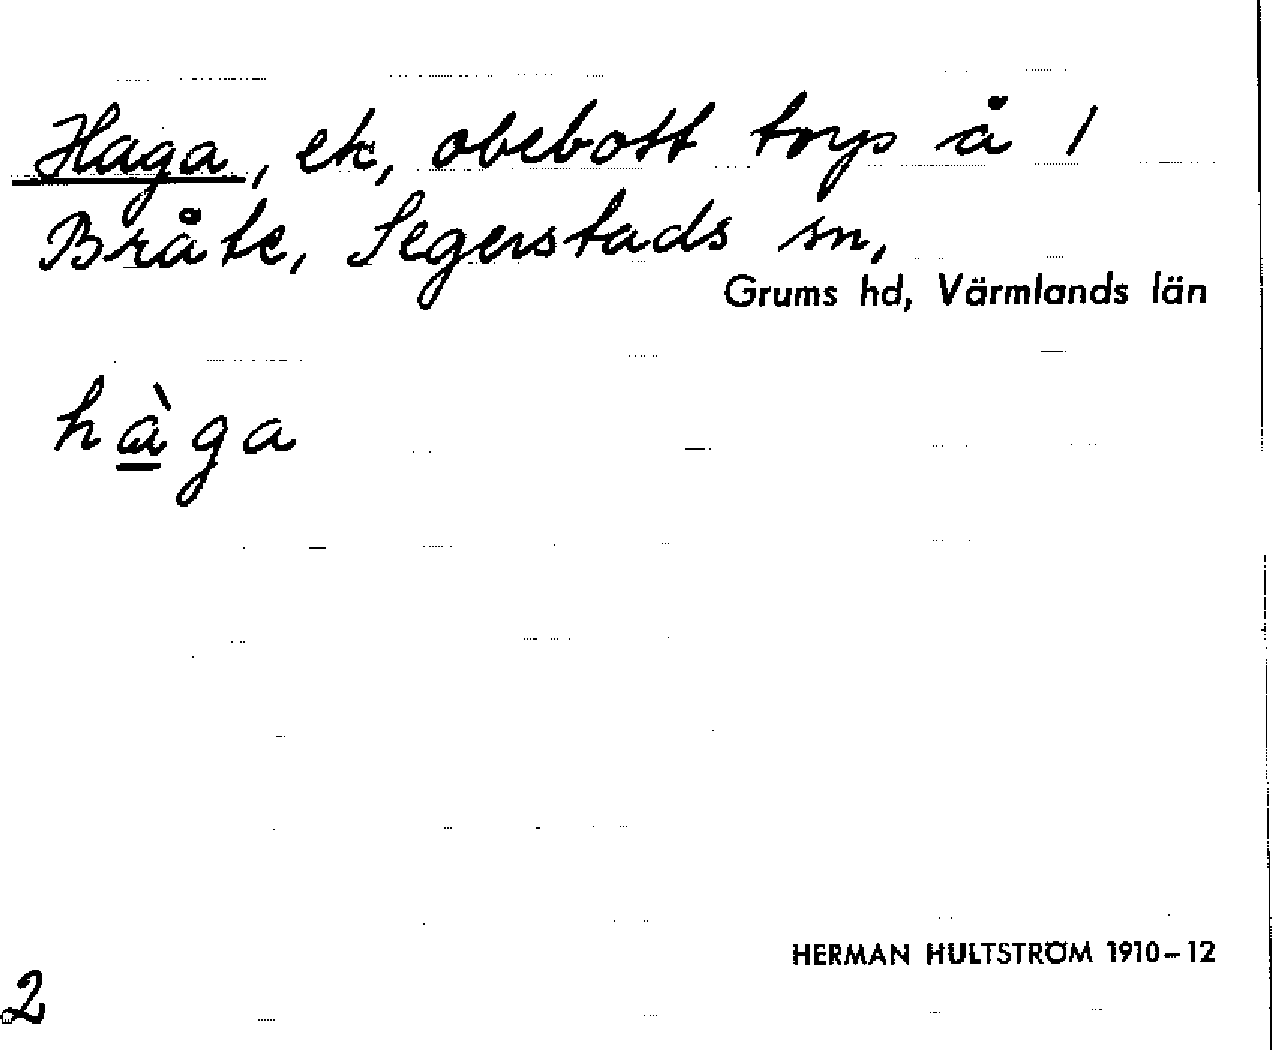 Haga, ek, obebott torp å 1
Bråte, Segerstads sn,
Grums hd, Värmlands län
hàga
HERMAN HULTSTRÖM 1910-12
2